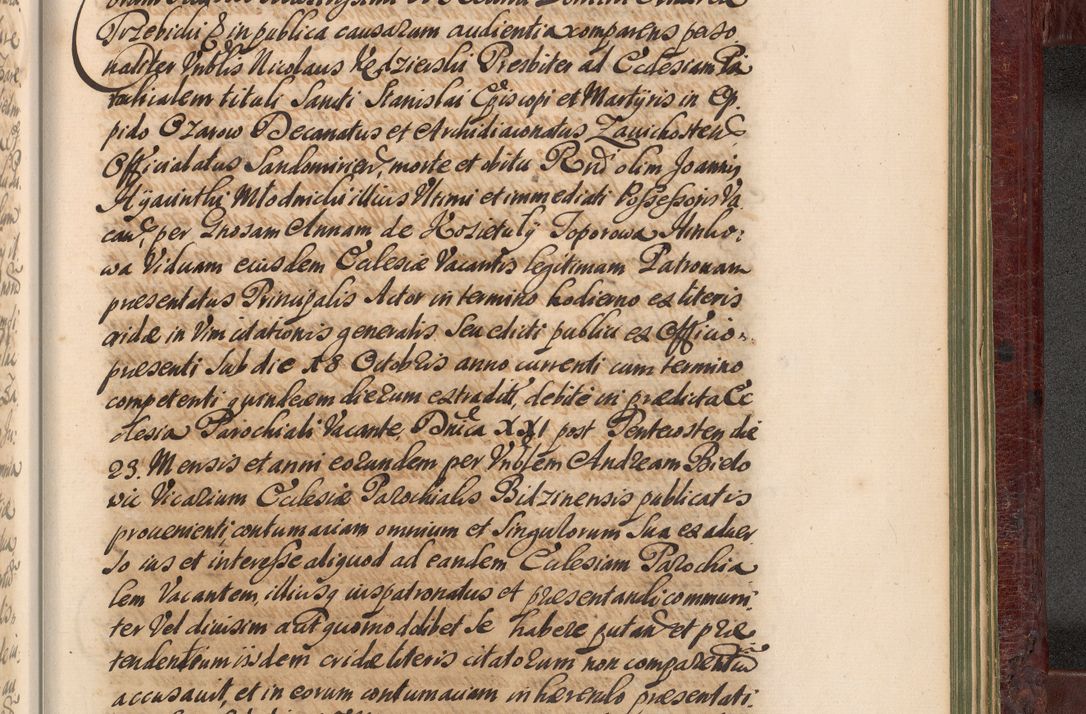 Trzebicki & in publica causarum audientia comparens perso
naliter Vnblis Nicolaus Kędzierski Presbiter ad Ecclesiam Pa
rochialem tituli Sancti Stanislai Episcopi et Martyris in Op
pido Ozarow Decanatus et Archidiaconatus Zauichosten
Officialatus Sandomirien, morte et obitu Rnd olim Joannis
Hyacinthi Młodnicki illius Vltimi et immediati Possessoris Va
can, per Gnosam Annam de Kosietuly Toporowa
wa Viduam eiusdem Ecclesiæ Vacantis legitimam Patronam
præsentatus Principalis Actor in termino hodierno ex literis
cridæ in Vim citationis generalis seu edicti publici ex Officio
præsenti sub die 18 Octobris anno currenti cum termino
competenti quindecem dierum extradit, debitè in prædicta Ec
clesia Parochiali Vacante, Dnica XXI post Pentecosten die
23. Mensis et anni eorundem per Vnblem Andream Biedo
wic Vicarium Ecclesiæ Parochialis Bidzinensis publicatis
prouenienti, contumaciam omnium et singulorum sua ex aduer
so ius et interesse aliquod ad eandem Ecclesiam Parochia
lem Vacantem, illiusq iuspatronatus et præsentandi commun
ter Vel diuisim aut quomodolibet se habere putan et præ
tendentium iisdem cridæ literis citatorum non comparentiu
accusauit, et in eorum contumaciam in hærendo præsentati